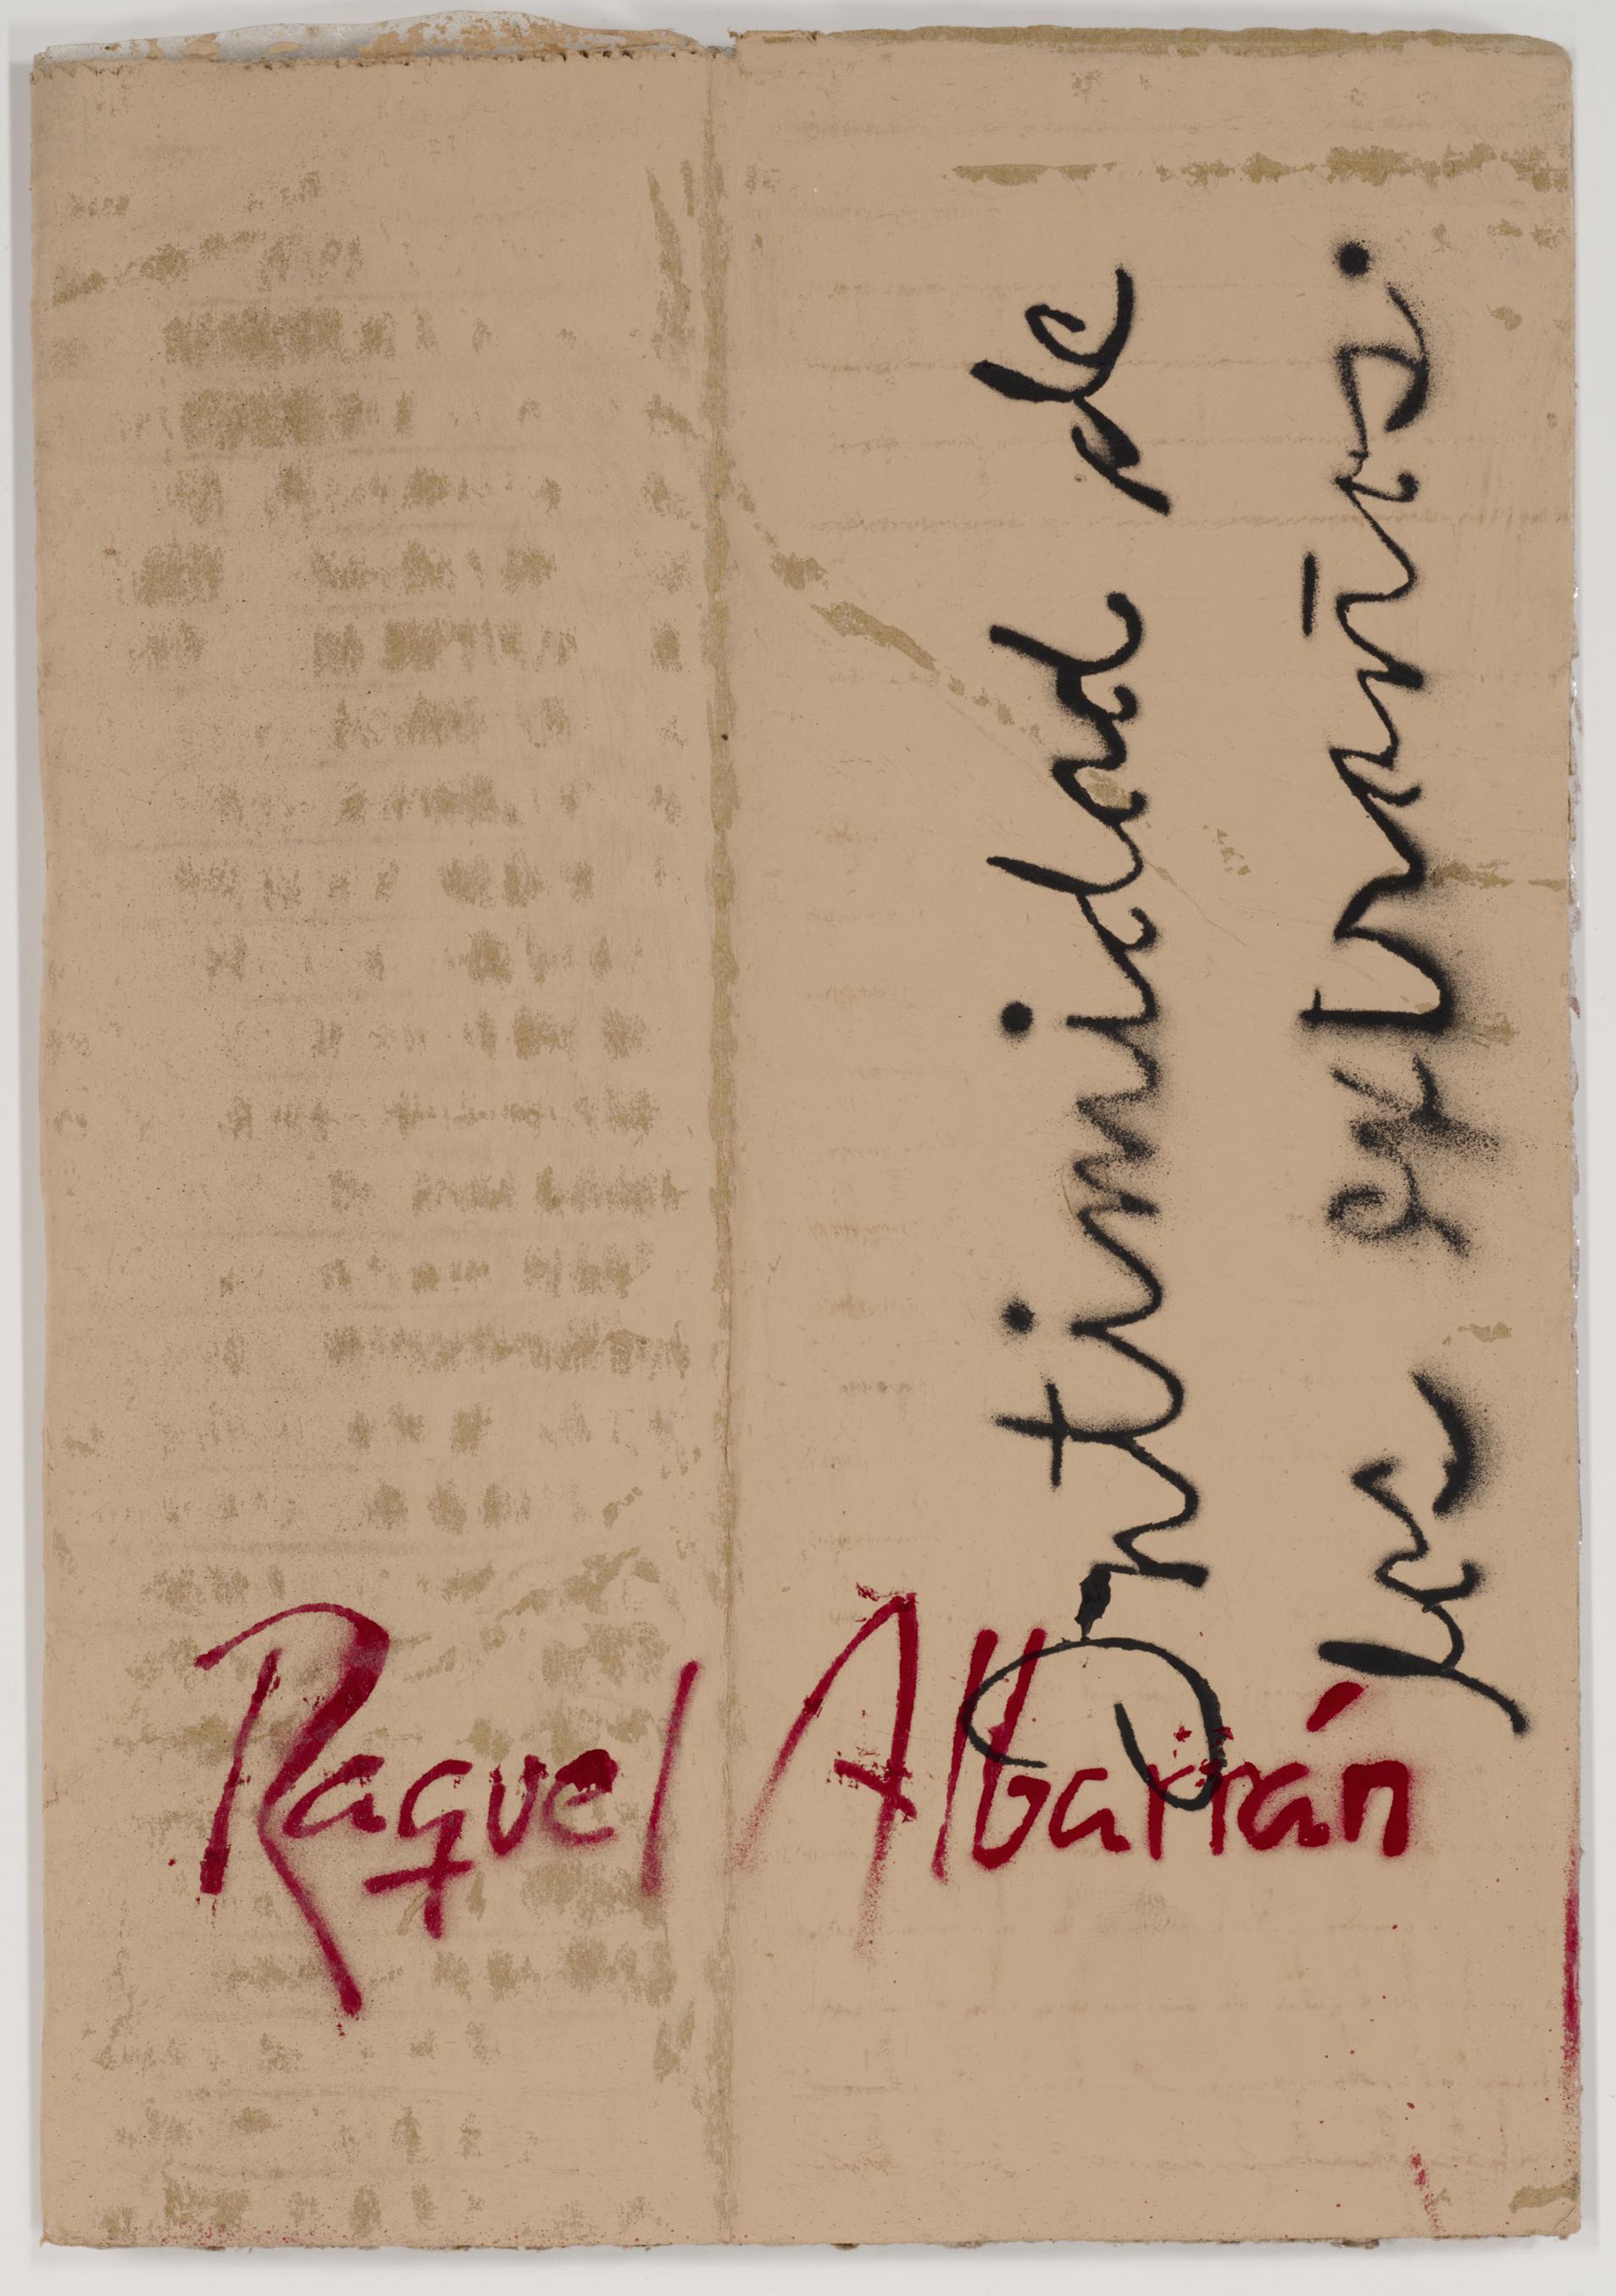 Intimidad de
los extraños.
Raquel Albarrán